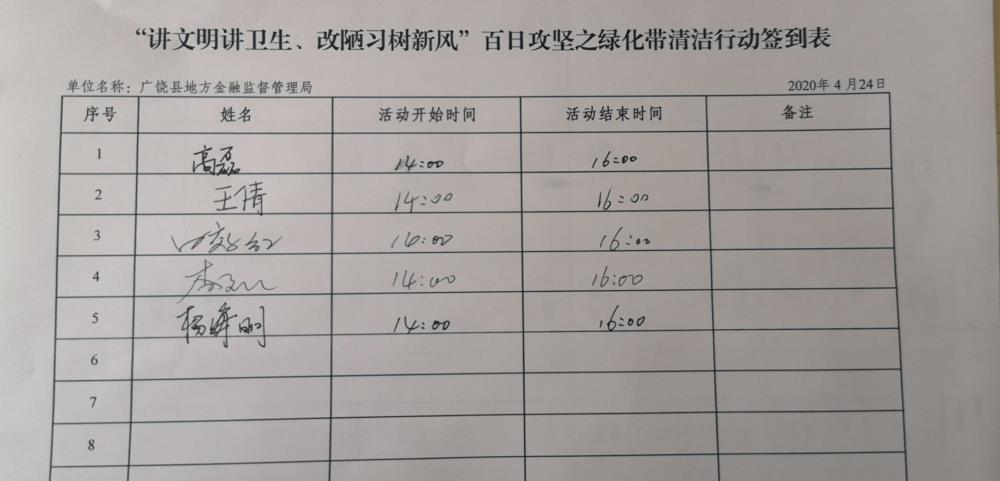 “讲文明讲卫生、改陋习树新风”百日攻坚之绿化带清洁行动签到表
单位名称：广饶县地方金融监督管理局 2020年4月24日
序号 姓名 活动开始时间 活动结束时间 备注
1 高磊 14:00 16:00
2 王倩 14:00 16:00
3 14:00 16:00
4 14:00 16:00
5 杨 明 14:00 16:00
6
7
8